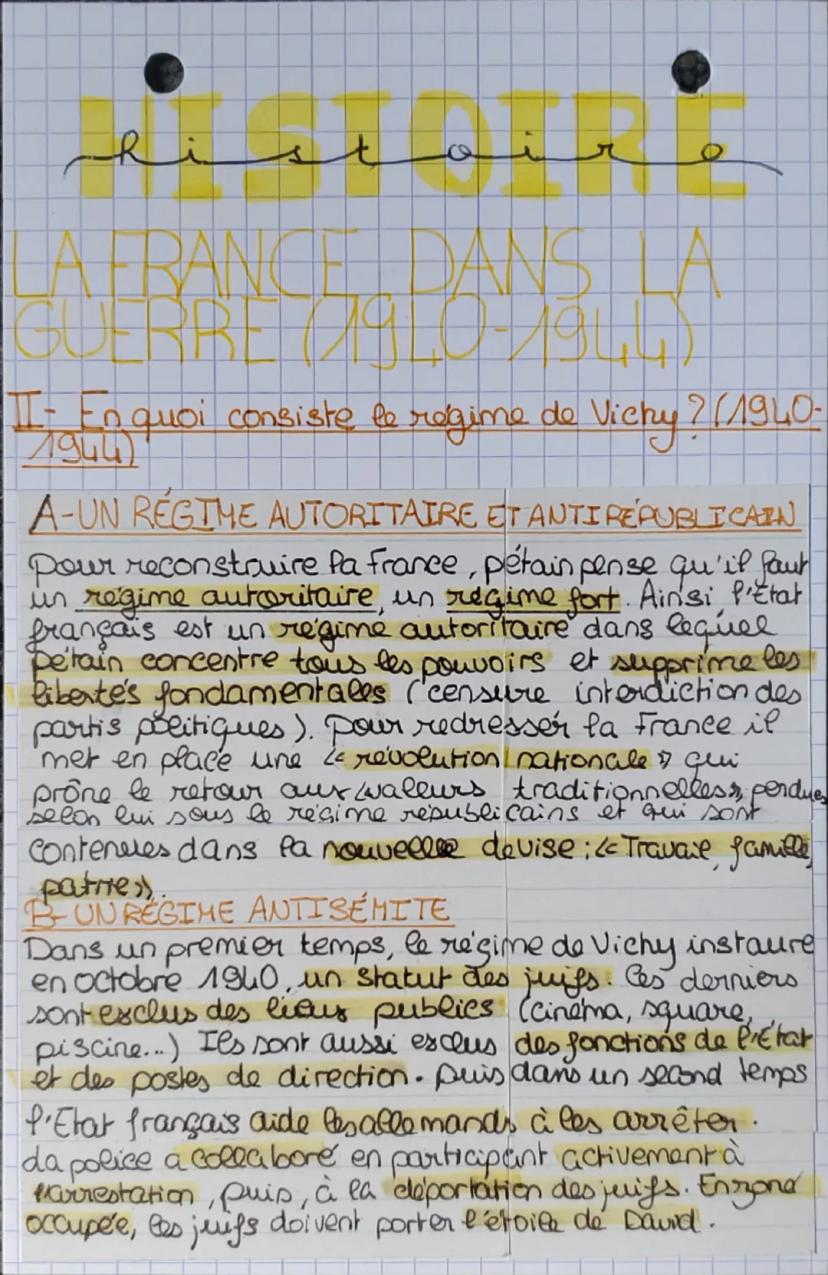 HISTOIRE
histoire
LA FRANCE DANS LA
GUERRE (1940-1944)
II- En quoi consiste le régime de Vichy ? (1940-
1944)
A-UN RÉGIME AUTORITAIRE ET ANTIRÉPUBLICAIN
Pour reconstruire la France, pétain pense qu'il faut
un régime autoritaire, un régime fort. Ainsi, l'État
français est un régime autoritaire dans lequel
pétain concentre tous les pouvoirs et supprime les
libertés fondamentales (censure, interdiction des
partis politiques). Pour redresser la France il
met en place une « révolution nationale » qui
prône le retour aux « valeurs traditionnelles » perdues
selon lui sous le régime républicains et qui sont
contenues dans la nouvelle devise : « Travail, famille,
patrie ».
B- UN RÉGIME ANTISÉMITE
Dans un premier temps, le régime de Vichy instaure
en octobre 1940, un statut des juifs. Ces derniers
sont exclus des lieux publics (cinéma, square,
piscine...) Ils sont aussi exclus des fonctions de l'État
et des postes de direction. Puis dans un second temps
l'État français aide les allemands à les arrêter.
La police a collaboré en participant activement à
l'arrestation, puis, à la déportation des juifs. En zone
occupée, les juifs doivent porter l'étoile de David.